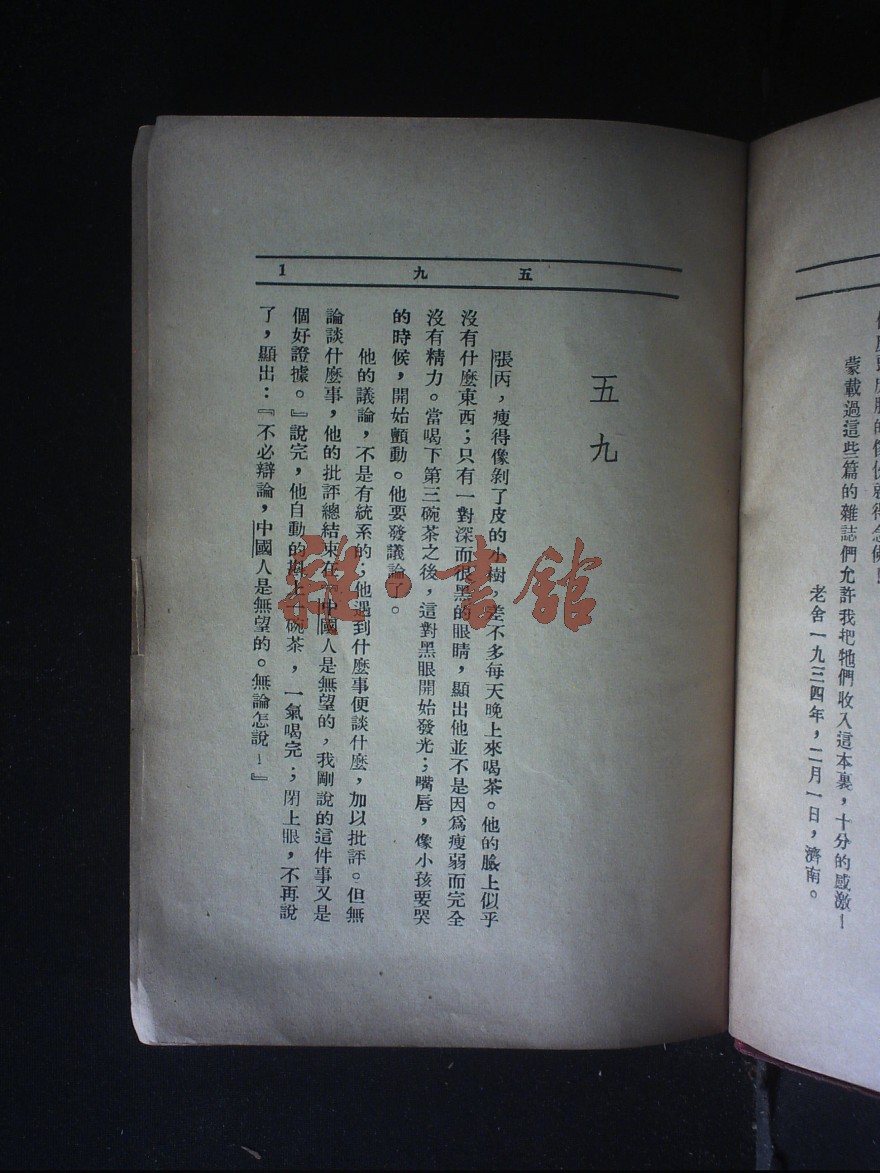 蒙載過這些篇的雜誌們允許我把牠們收入這本裏，十分的感激！
老舍一九三四年，二月一日，濟南。
五九
1
五九
張丙，瘦得像剝了皮的小樹，差不多每天晚上來喝茶。他的臉上似乎
沒有什麼東西；只有一對深而很黑的眼睛，顯出他並不是因爲瘦弱而完全
沒有精力。當喝下第三碗茶之後，這對黑眼開始發光；嘴唇，像小孩要哭
的時候，開始顫動。他要發議論了。
他的議論，不是有統系的；他遇到什麼事便談什麼，加以批評。但無
論談什麼事，他的批評總結束在『中國人是無望的，我剛說的這件事又是
個好證據。』說完，他自動的斟上一碗茶，一氣喝完；閉上眼，不再說
了，顯出：『不必辯論，中國人是無望的。無論怎說！』
雜·書館